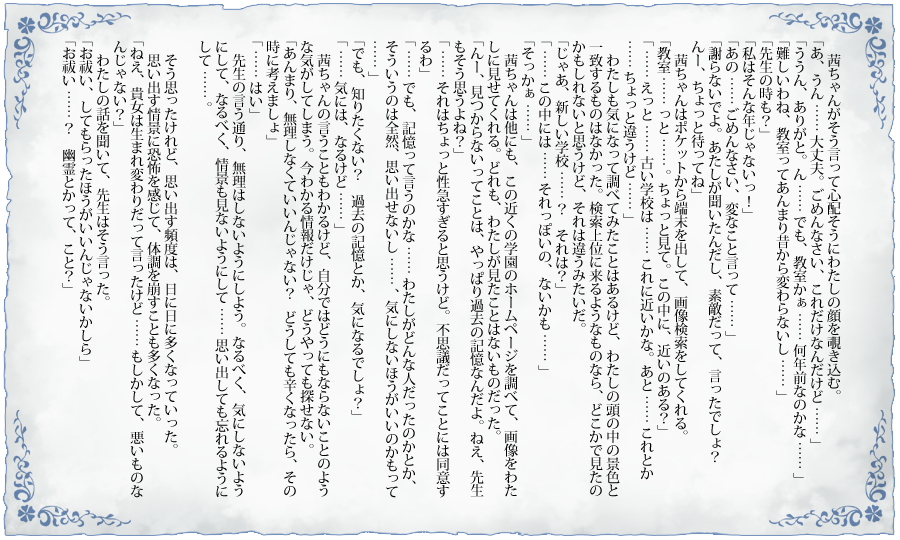 茜ちゃんがそう言って心配そうにわたしの顔を覗き込む。
「あ、うん……大丈夫。ごめんなさい、これだけなんだけど……」
「ううん、ありがと。ん……でも、教室かぁ……何年前なのかな……」
「難しいわね、教室ってあんまり昔から変わらないし……」
「先生の時も？」
「私はそんな年じゃないっ！」
「あの……ごめんなさい、変なこと言って……」
「謝らないでよ。あたしが聞いたんだし、素敵だって、言ったでしょ？
んー、ちょっと待ってね」
　茜ちゃんはポケットから端末を出して、画像検索をしてくれる。
「教室……っと……。ちょっと見て。この中に、近いのある？」
「……えっと……古い学校は……これに近いかな。あと……これとか
……ちょっと違うけど……」
　わたしも気になって調べてみたことはあるけど、わたしの頭の中の景色と
一致するものはなかった。検索上位に来るようなものなら、どこかで見たの
かもしれないと思うけど、それは違うみたいだ。
「じゃあ、新しい学校……？　それは？」
「……この中には……それっぽいの、ないかも……」
「そっかぁ……」
　茜ちゃんは他にも、この近くの学園のホームページを調べて、画像をわた
しに見せてくれる。どれも、わたしが見たことはないものだった。
「んー、見つからないってことは、やっぱり過去の記憶なんだよ。ねえ、先生
もそう思うよね？」
「……それはちょっと性急すぎると思うけど。不思議だってことには同意す
るわ」
「……でも、記憶って言うのかな……わたしがどんな人だったのかとか、
そういうのは全然、思い出せないし……気にしないほうがいいのかもって
……」
「でも、知りたくない？　過去の記憶とか、気になるでしょ？」
「……気には、なるけど……」
　茜ちゃんの言うこともわかるけど、自分ではどうにもならないことのよう
な気がしてしまう。今わかる情報だけじゃ、どうやっても探せない。
「あんまり、無理しなくていいんじゃない？　どうしても辛くなったら、その
時に考えましょ」
「……はい」
　先生の言う通り、無理はしないようにしよう。なるべく、気にしないよう
にして、なるべく、情景も見ないようにして……思い出しても忘れるように
して……。
　そう思ったけれど、思い出す頻度は、日に日に多くなっていった。
　思い出す情景に恐怖を感じて、体調を崩すことも多くなった。
「ねえ、貴女は生まれ変わりだって言ったけど……もしかして、悪いものな
んじゃない？」
　わたしの話を聞いて、先生はそう言った。
「お祓い、してもらったほうがいいんじゃないかしら」
「お祓い……？　幽霊とかって、こと？」